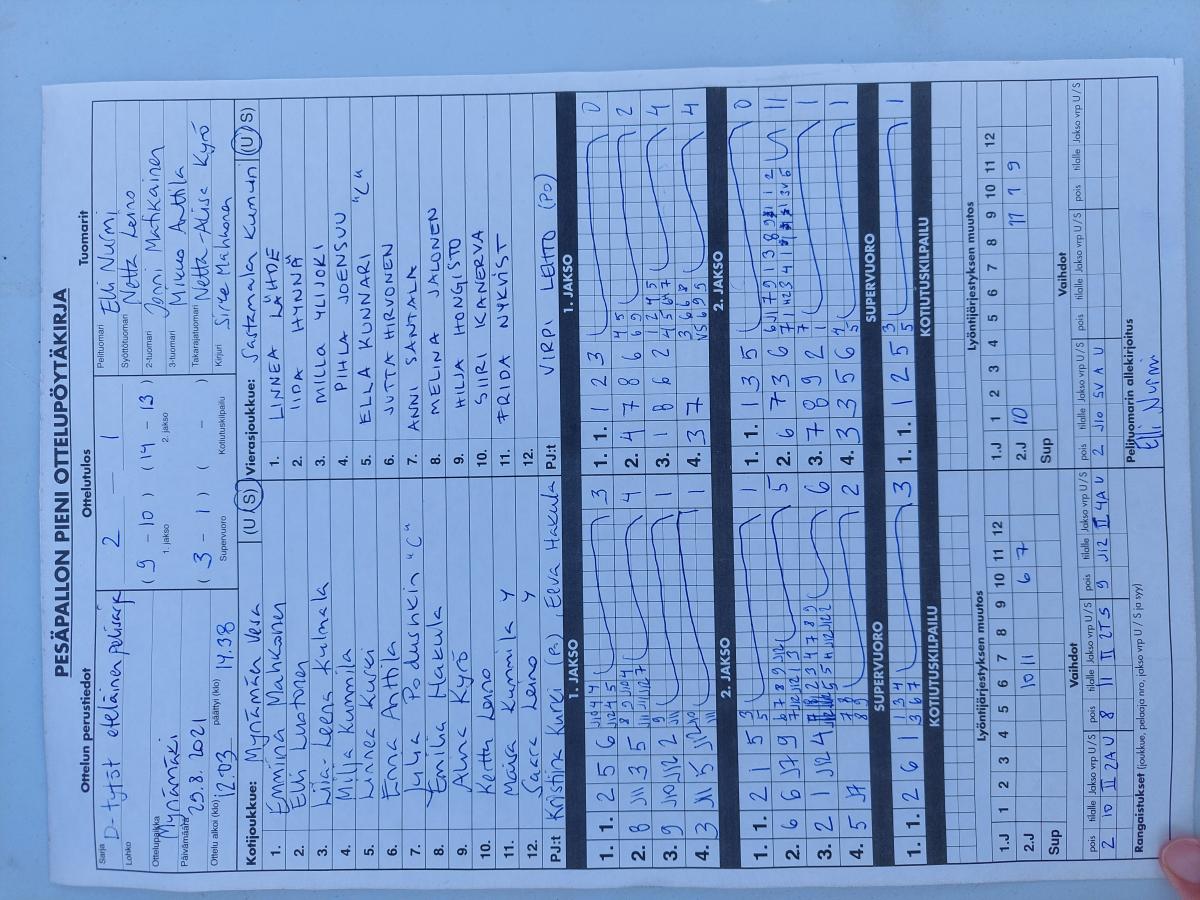 PESÄPALLON PIENI OTTELUPÖYTÄKIRJA
Ottelun perustiedot
Ottelutulos
Tuomarit
Sarja D-tytöt eteläinen
Lohko
Ottelupaikka Mynämäki
Päivämäärä 29.8.2021
Ottelu alkoi (klo) 12.03 päättyi (klo) 14.38
2 — 1
(9 - 10) (14 - 13)
1. jakso 2. jakso
(3 - 1) ( - )
Supervuoro Kotiutuskilpailu
Pelituomari Elli Nurmi
Syöttötuomari Netta Leino
2-tuomari Jonni Matikainen
3-tuomari Mikko Anttila
Takarajatuomari Netta-Aliise Kyrö
Kirjuri Sirre Mahkonen
Kotijoukkue: Mynämäen Vesa (U / S)
1. Emmiina Mahkonen
2. Elli Luotonen
3. Liia-Leena Kulmala
4. Milja Kummila
5. Linnea Kurki
6. Enna Anttila
7. Julia Podushkin "C"
8. Emilia Hakula
9. Alina Kyrö
10. Kerttu Leino
11. Maisa Kummila Y
12. Saara Leino Y
PJ:t Kristiina Kurki (R), Eeva Hakula
Vierasjoukkue: Sastamala Kumuri (U / S)
1. LINNEA LÄHDE
2. IIDA HYNNÄ
3. MILLA YLIJOKI
4. PIHLA JOENSUU
5. ELLA KUNNARI "C"
6. JUTTA HIRVONEN
7. ANNI SANTALA
8. MELINA JALONEN
9. HILJA HONGISTO
10. SIIRI KANERVA
11. FRIDA NYKVIST
12.
PJ:t VIRPI LEHTO (PJ)
1. JAKSO
1. 1. 2 5 6 3
2. 8 J11 3 5 4
3. 9 J10 J12 2 1
4. 3 J11 5 J12 1
2. JAKSO
1. 1. 2 1 5 1
2. 6 6 J7 9 5
3. 2 1 J12 4 6
4. 5 J7 2
SUPERVUORO
1. 1. 2 6 1 3
KOTIUTUSKILPAILU
1. JAKSO
1. 1. 1 2 3 0
2. 4 7 8 6 2
3. 1 8 6 2 4
4. 3 7 4
2. JAKSO
1. 1. 1 3 5 0
2. 6 7 3 6 11
3. 7 8 9 2 1
4. 3 3 5 6 1
SUPERVUORO
1. 1. 1 2 5 1
KOTIUTUSKILPAILU
Lyöntijärjestyksen muutos
1.J 1 2 3 4 5 6 7 8 9 10 11 12
2.J 10 11 6 7
Sup
Lyöntijärjestyksen muutos
1.J 1 2 3 4 5 6 7 8 9 10 11 12
2.J 10 11 7 9
Sup
Vaihdot
pois tilalle Jakso vrp U / S pois tilalle Jakso vrp U / S pois tilalle Jakso vrp U / S
2 10 II 2A U 8 11 II 2T S 9 J12 II 4A U
Vaihdot
pois tilalle Jakso vrp U / S pois tilalle Jakso vrp U / S pois tilalle Jakso vrp U / S
2 J10 SV A U
Rangaistukset (joukkue, pelaaja nro, jakso vrp U / S ja syy)
Pelituomarin allekirjoitus
Elli Nurmi